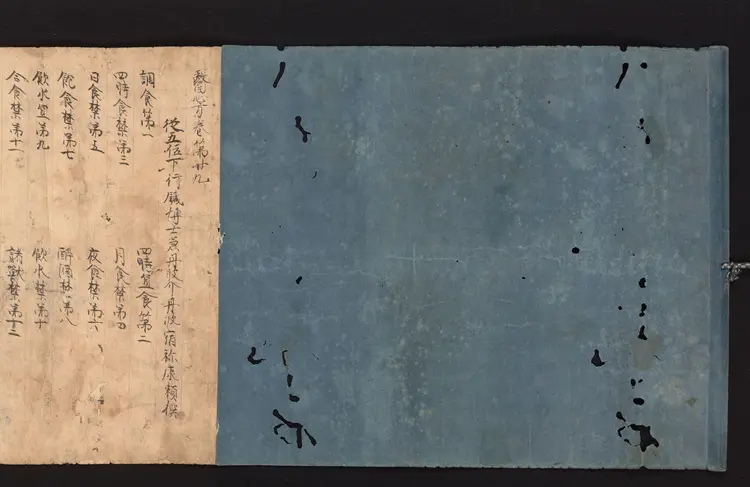 醫心方卷第廿九
從五位下行鍼博士兼丹波介丹波宿祢康頼撰
調食第一
四時宜食第二
四時食禁第三
月食禁第四
日食禁第五
夜食禁第六
飽食禁第七
醉酒禁第八
飲水宜第九
飲水禁第十
合食禁第十一
諸獸禁第十二